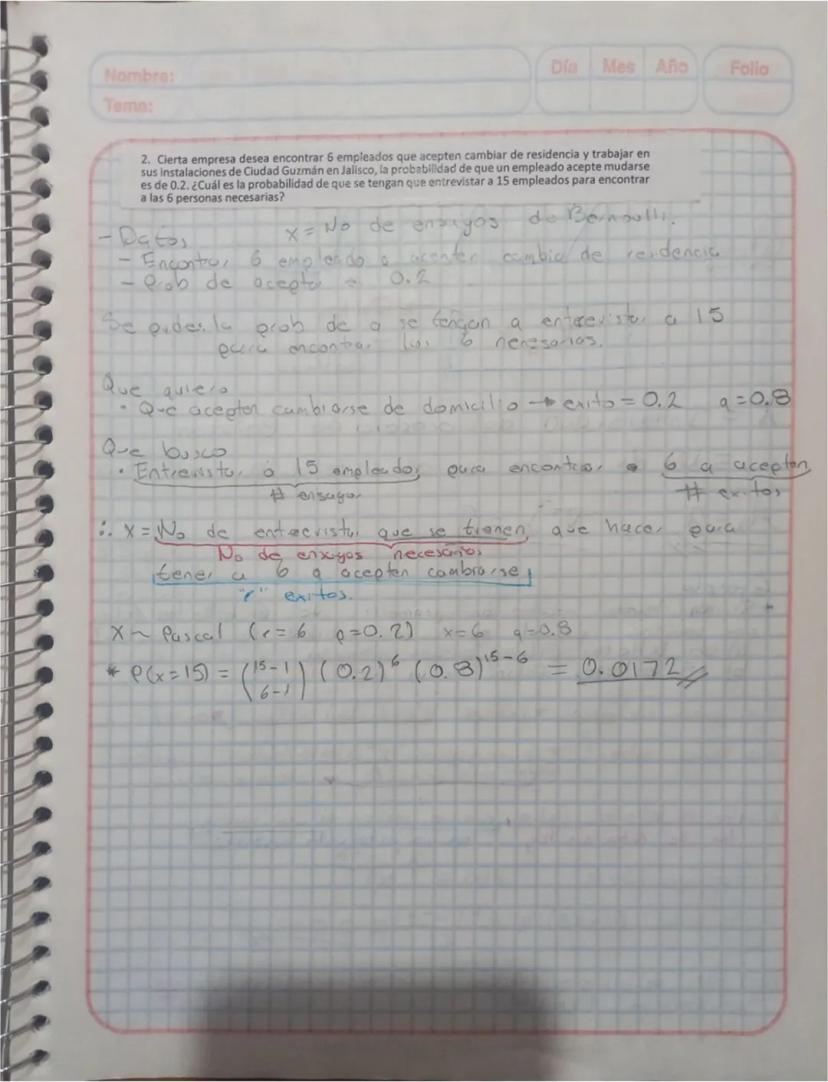 Nombre:
Tema:
Día Mes Año
Folio
2. Cierta empresa desea encontrar 6 empleados que acepten cambiar de residencia y trabajar en
sus instalaciones de Ciudad Guzmán en Jalisco, la probabilidad de que un empleado acepte mudarse
es de 0.2. ¿Cuál es la probabilidad de que se tengan que entrevistar a 15 empleados para encontrar
a las 6 personas necesarias?
- Datos x = No de ensayos de Bernoulli.
- Encontrar 6 empleado q acepten cambio de residencia
- Prob de aceptar = 0.2
Se pide: la prob de q se tengan a entrevistar a 15
para encontrar los 6 necesarios.
Que quiero
• Que acepten cambiarse de domicilio → exito = 0.2 q = 0.8
Que busco
• Entrevistar a 15 empleados para encontrar a 6 q aceptan
# ensayos # exitos
∴ x = No de entrevistas que se tienen que hacer para
No de ensayos necesarios
tener a 6 q acepten cambiarse
"r" exitos.
X ~ Pascal (r = 6 p = 0.2) x = 6 q = 0.8
* P(x = 15) = (15-1 6-1) (0.2)^6 (0.8)^15-6 = 0.0172